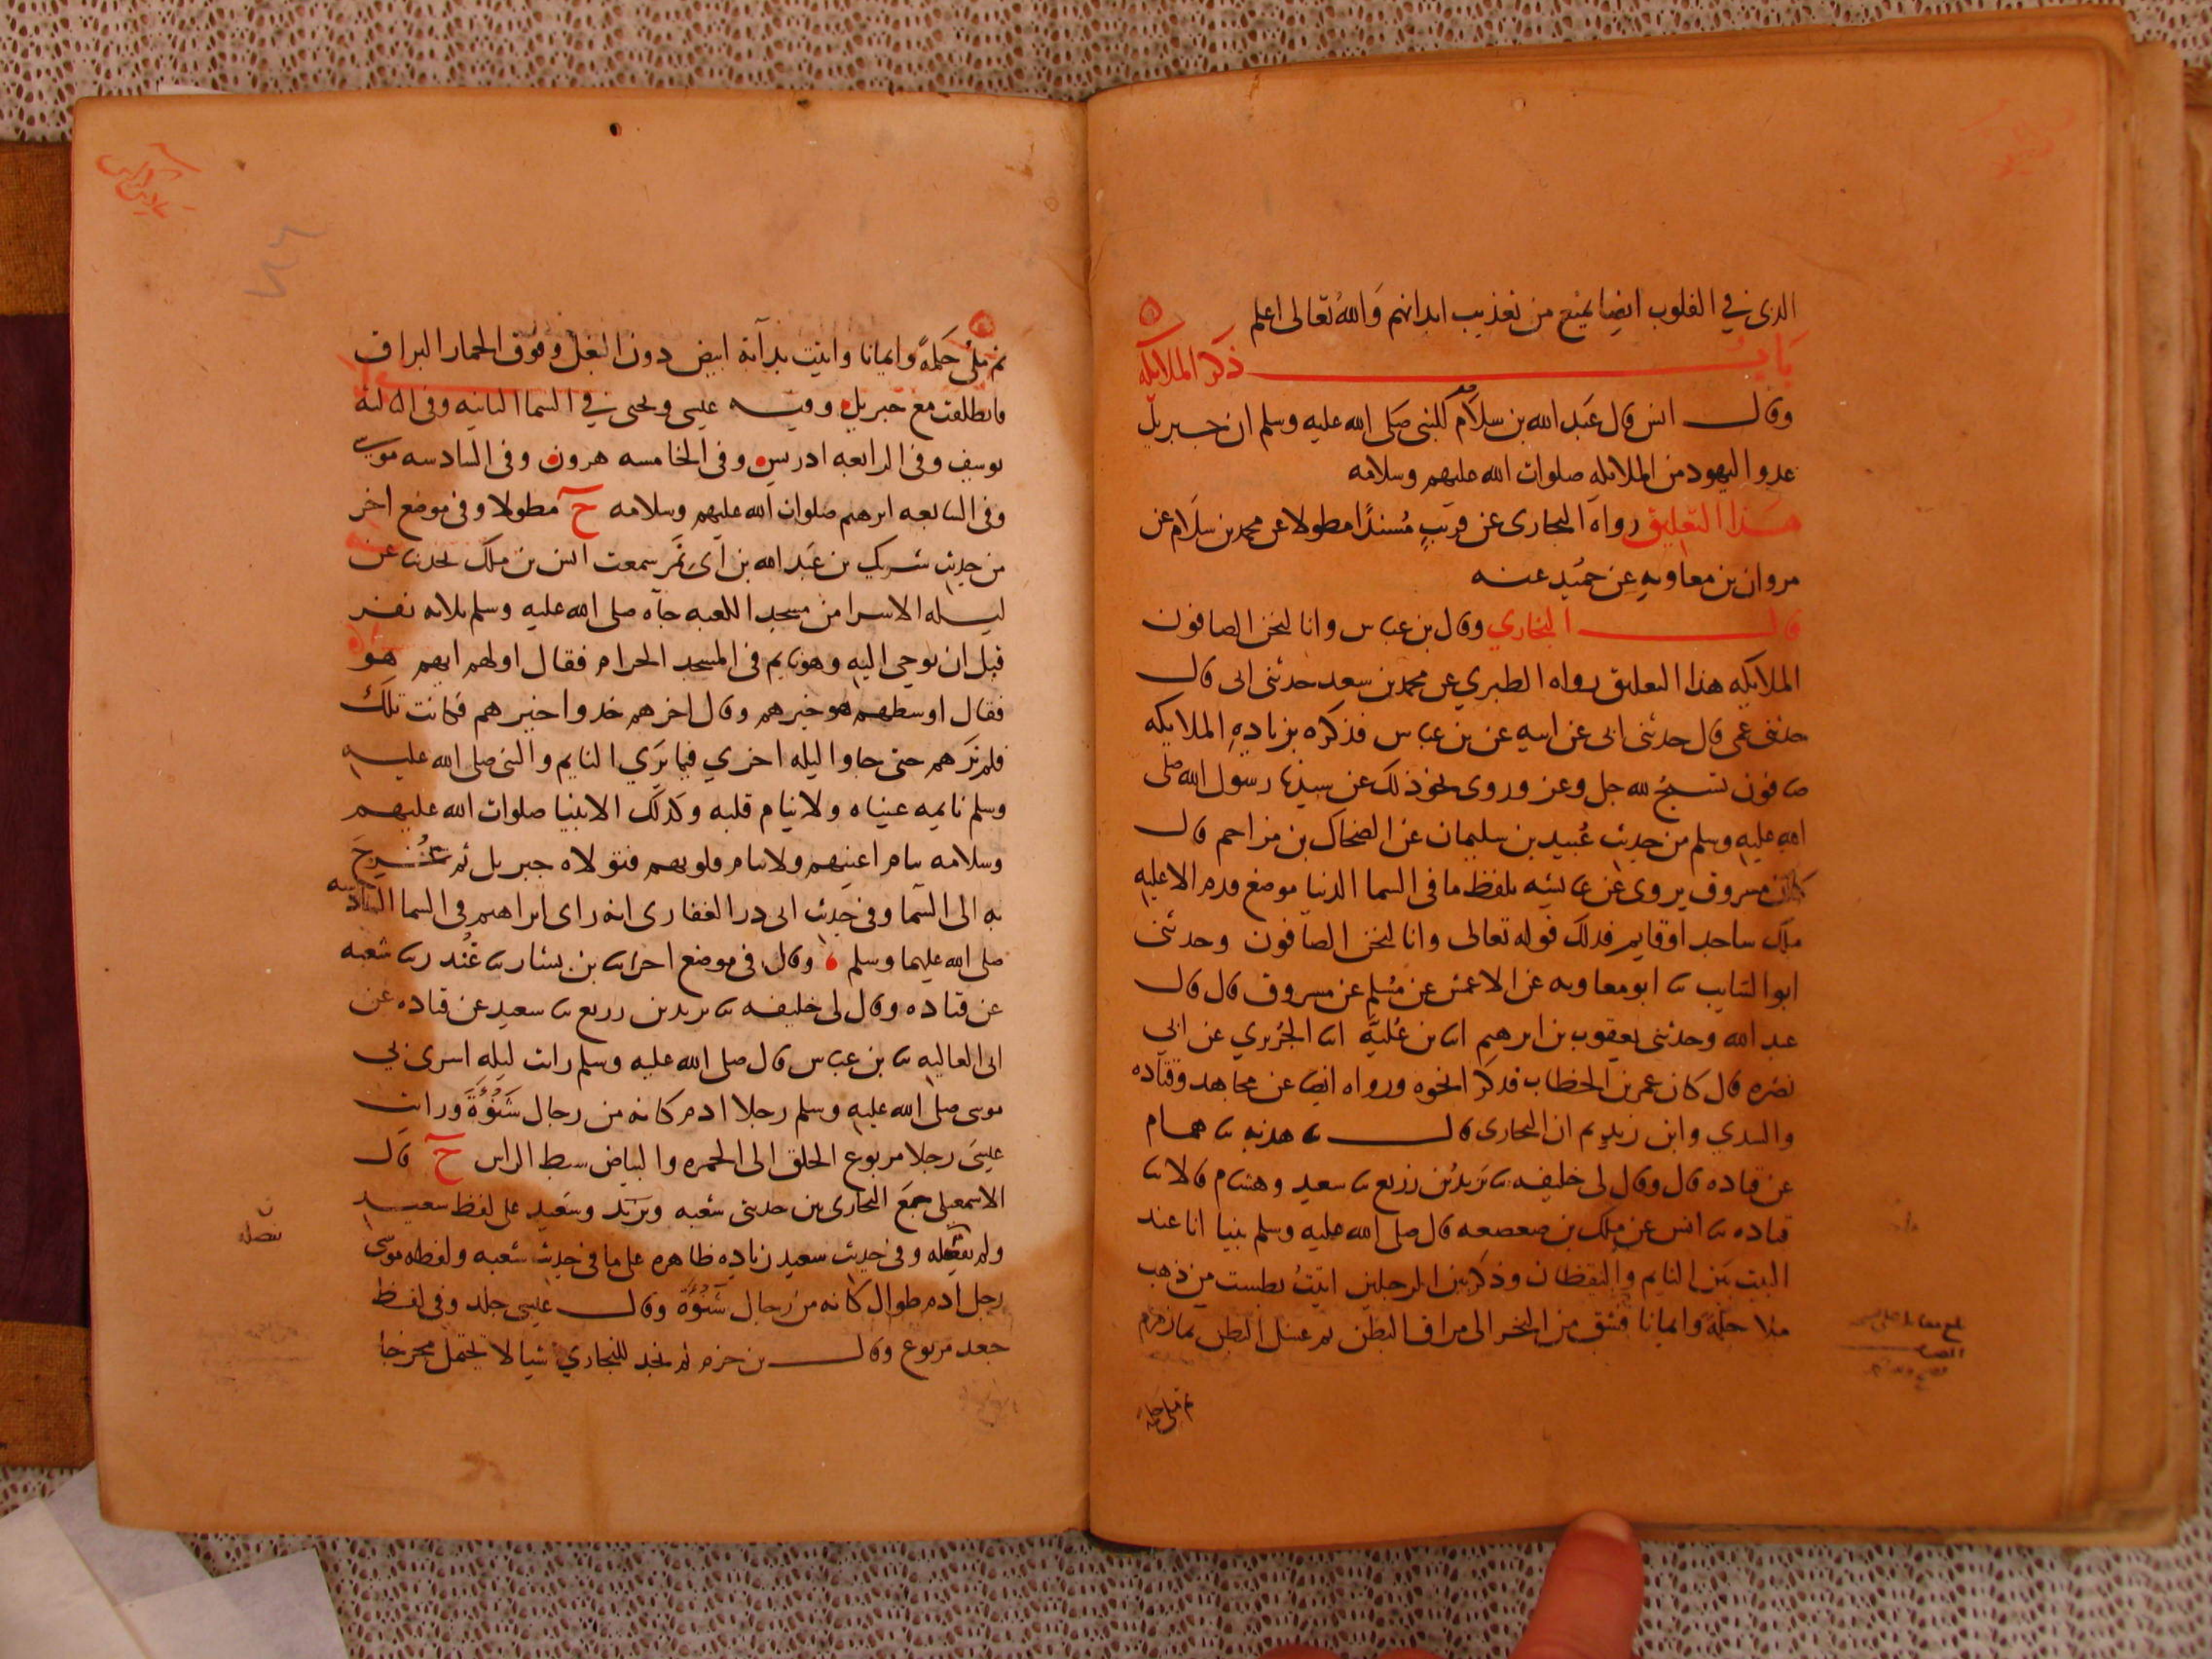 الذي في القلوب ايضا يمنع من تعذيب ابدانهم والله تعالى اعلم
باب ذكر الملائكة
وقال انس قال عبد الله بن سلام للنبي صلى الله عليه وسلم ان جبريل
عدو اليهود من الملايكه صلوات الله عليهم وسلامه
هذا التعليق رواه البخاري عن قريب مسندا مطولا عن محمد بن سلام عن
مروان بن معاويه عن حميد عنه
قال البخاري وقال بن عباس وانا لنحن الصافون
الملايكه هذا التعليق رواه الطبري عن محمد بن سعد حدثني ابى قال
حدثني عمي قال حدثني ابي عن ابيه عن بن عباس فذكره بزياده الملايكه
صافون تسبح لله جل وعز وروى نحو ذلك عن سيدنا رسول الله صلى
الله عليه وسلم من حديث عبيد بن سليمان عن الضحاك بن مزاحم قال
كان مسروق يروى عن عايشه بلفظ ما في السما الدنيا موضع قدم الا عليه
ملك ساجد او قايم فذلك قوله تعالى وانا لنحن الصافون وحدثني
ابو السايب نا ابو معاويه عن الاعمش عن مسلم عن مسروق قال قال
عبد الله وحدثني يعقوب بن ابرهيم انا بن علية انا الجريري عن ابي
نضره قال كان عمر بن الخطاب فذكر نحوه ورواه ايضا عن مجاهد وقتاده
والسدي وابن زيد ثم ان البخارى قال نا هدبه نا همام
عن قتاده قال وقال لى خليفه نا يزيد بن زريع نا سعيد وهشام قالا نا
قتاده نا انس عن ملك بن صعصعه قال صلى الله عليه وسلم بينا انا عند
البيت بين النايم واليقظان وذكر بين الرجلين اتيت بطست من ذهب
ملا حكمة وايمانا فشق من النحر الى مراق البطن ثم غسل البطن بما زمزم
ثم ملى حكمة
ثم ملئ حكمة وايمانا واتيت بدابة ابيض دون البغل وفوق الحمار البراق
فانطلقت مع جبريل وفيه عيسى ويحيى في السما الثانيه وفى الثالثه
يوسف وفى الرابعه ادريس وفى الخامسه هرون وفى السادسه موسى
وفى السابعه ابرهيم صلوات الله عليهم وسلامه ح مطولا وفى موضع اخر
من حديث شريك بن عبد الله بن ابى نمر سمعت انس بن ملك يحدث عن
ليله الاسرا من مسجد الكعبه جاه صلى الله عليه وسلم ثلاثه نفر
قبل ان يوحى اليه وهو نايم في المسجد الحرام فقال اولهم ايهم هو
فقال اوسطهم هو خيرهم وقال اخرهم خذوا خيرهم فكانت تلك
فلم يرهم حتى جاوا ليله اخري فيما يري النايم والنبى صلى الله عليه
وسلم نايمه عيناه ولا ينام قلبه وكذلك الانبيا صلوات الله عليهم
وسلامه تنام اعينهم ولا تنام قلوبهم فتولاه جبريل ثم عرج
به الى السما وفى حديث ابى ذر الغفارى انه راى ابراهيم فى السما السادسه
صلى الله عليهما وسلم وقال في موضع اخر نا بن بشار نا غندر نا شعبه
عن قتاده وقال لى خليفه نا يزيد بن زريع نا سعيد عن قتاده عن
ابى العاليه نا بن عباس قال صلى الله عليه وسلم رايت ليله اسرى بي
موسى صلى الله عليه وسلم رجلا ادم كانه من رجال شنوءة ورايت
عيسى رجلا مربوع الخلق الى الحمره والبياض سبط الراس ح قال
الاسمعيلى جمع البخارى بين حديثى شعبه ويزيد وسعيد على لفظ سعيد
ولم يفصله وفى حديث سعيد زياده ظاهره على ما في حديث شعبه ولفظه موسى
رجل ادم طوال كانه من رجال شنوءة وقال عيسى جلد وفى لفظ
جعد مربوع وقال بن حزم لم نجد للبخاري شيا لا يحتمل مخرجا